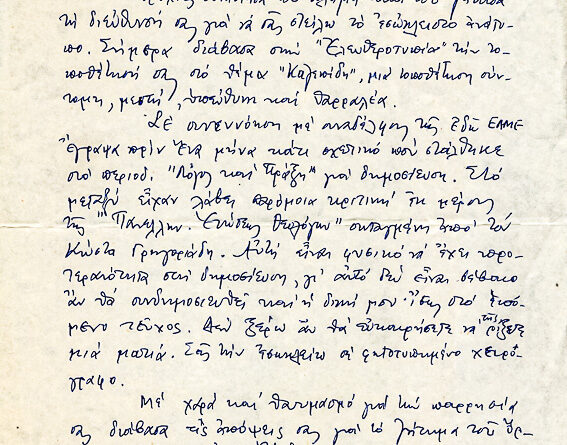 τὴ διεύθυνσή σας γιά νά σᾶς στείλω τό ἐσώκλειστο ἀνάτυ-
πο. Σήμερα διάβασα στήν "Ἐλευθεροτυπία" τήν το-
ποθέτησή σας στό θέμα "Καλεπίδη", μιά τοποθέτηση σύν-
τομη, μεστή, ὑπεύθυνη καί θαρραλέα.
Σέ συνεννόηση μέ συναδέλφους τῆς ἐδῶ ΕΛΜΕ
ἔγραψα πρίν ἕνα μήνα κάτι σχετικό πού στάλθηκε
στό περιοδ. "Λόγος καί Πράξη" γιά δημοσίευση. Στό
μεταξύ εἶχαν λάβει παρόμοια κριτική ἐκ μέρους
τῆς "Πανελλην. Ἑνώσεως Θεολόγων" συνταγμένη ἀπό τόν
Κώστα Γρηγοριάδη. Αὐτή εἶναι φυσικό νά ἔχει προ-
τεραιότητα στή δημοσίευση, γι' αὐτό δέν εἶναι βέβαιο
ἄν θά συνδημοσιευθεῖ καί ἡ δική μου στό ἑπό-
μενο τεῦχος. Δέν ξέρω ἄν θά εὐκαιρήσετε νά τῆς ρίξετε
μιά ματιά. Σᾶς τήν ἐσωκλείω σέ φωτοτυπημένο χειρό-
γραφο.
Μέ χαρά καί θαυμασμό γιά τήν παρρησία
σας διάβασα τίς ἀπόψεις σας γιά τό ζήτημα τοῦ ὅρ-